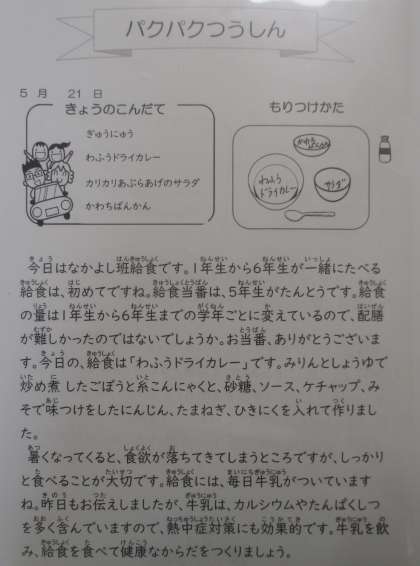 パクパクつうしん
5 月 21 日
きょうのこんだて
ぎゅうにゅう
わふうドライカレー
カリカリあぶらあげのサラダ
かわちばんかん
もりつけかた
かわち
ばんかん
わふう
ドライカレー
サラダ
今日はなかよし班給食です。1年生から6年生が一緒にたべる
給食は、初めてですね。給食当番は、5年生がたんとうです。給食
の量は1年生から6年生までの学年ごとに変えているので、配膳
が難しかったのではないでしょうか。お当番、ありがとうございま
す。今日の、給食は「わふうドライカレー」です。みりんとしょうゆで
炒め煮したごぼうと糸こんにゃくと、砂糖、ソース、ケチャップ、み
そで味つけをしたにんじん、たまねぎ、ひきにくを入れて作りまし
た。
暑くなってくると、食欲が落ちてきてしまうところですが、しっかり
と食べることが大切です。給食には、毎日牛乳がついています
ね。昨日もお伝えしましたが、牛乳は、カルシウムやたんぱくしつ
を多く含んでいますので、熱中症対策にも効果的です。牛乳を飲
み、給食を食べて健康なからだをつくりましょう。